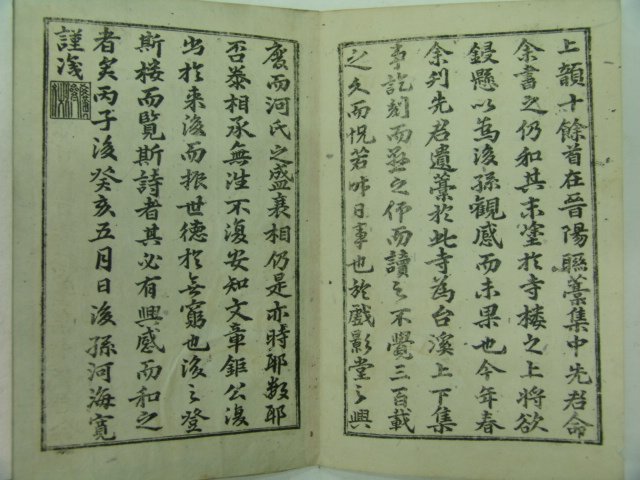 上韻十餘首在晉陽聯藁集中先君命
余書之仍和其末堂於寺樓之上將欲
鋟懸以爲後孫觀感而未果也今年春
余刊先君遺藁於此寺爲台溪上下集
事訖刻而懸之俯而讀之不覺三百載
之久而怳若昨日事也於戱影堂之興
廢而河氏之盛衰相仍是亦時耶數耶
否泰相承無往不復安知文章鉅公復
出於來後而振世德於無窮也後之登
斯樓而覽斯詩者其必有興感而和之
者矣丙子後癸亥五月日後孫河海寬
謹識